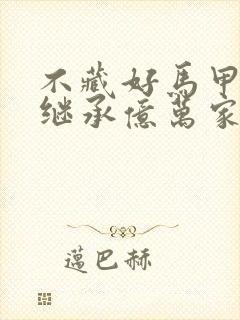 不藏好馬甲
继承億萬家
邁巴赫